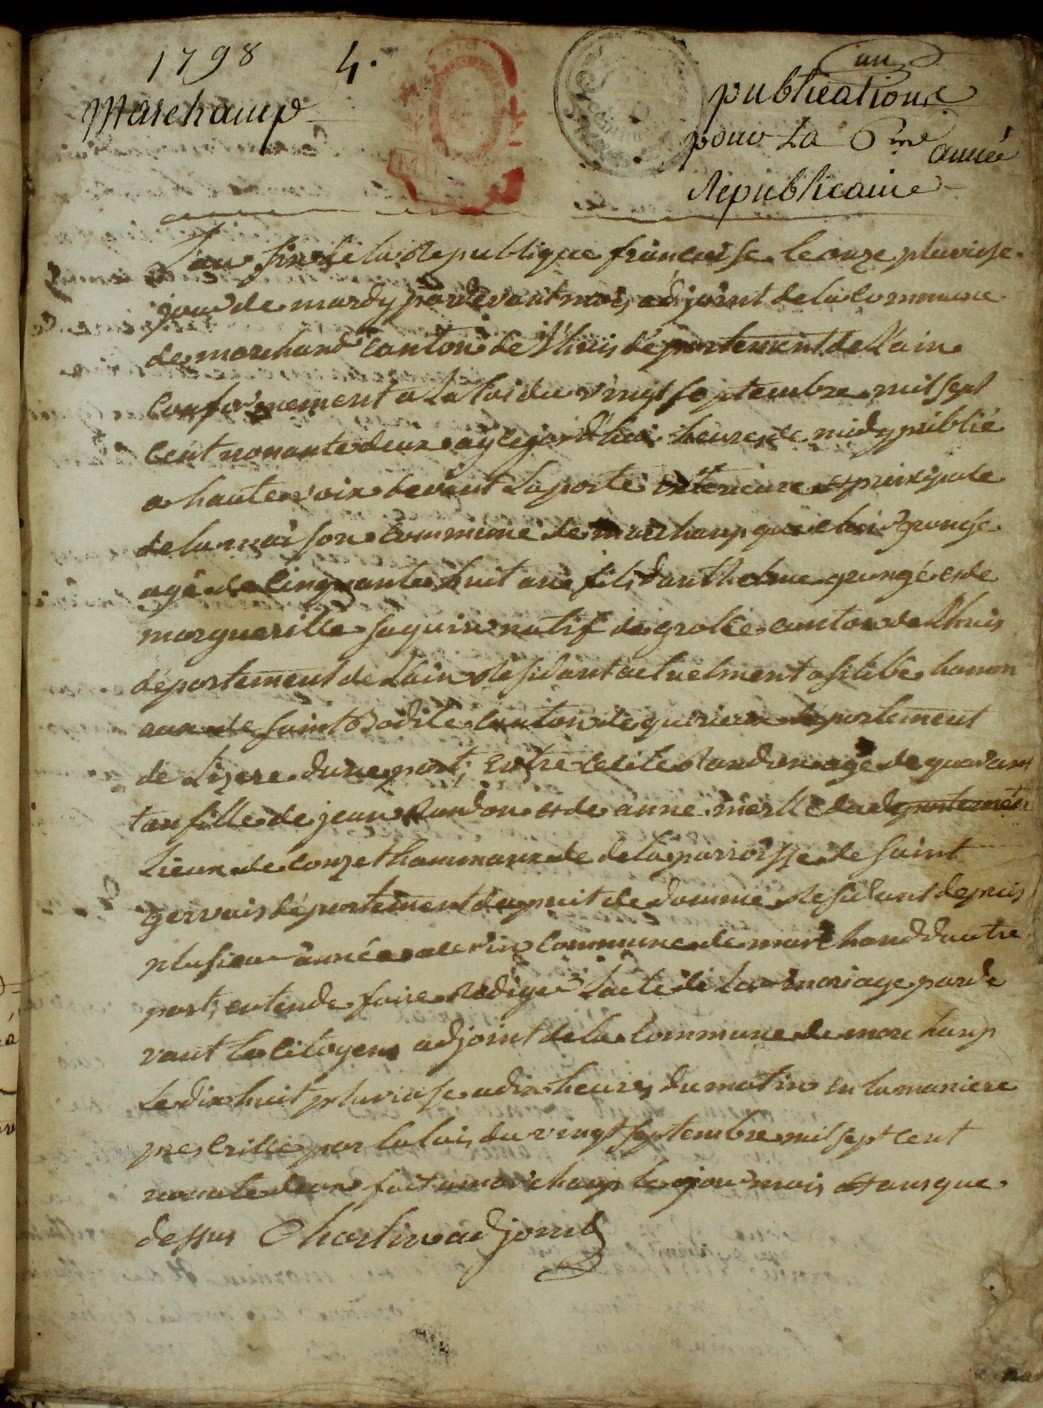 1798 4.
Marchamp
an
publications
pour la 6me
année
Republicaine
L'an six de la Republique francaise le onze pluviose
jour de mardy pardevant moi adjoint de la commune
de marchand canton de Lhuis département de L'ain
Conformement a la loi du vingt septembre mil sept
cent nonante deux ay cejourd'hui heure de midy publié
a haute voix devant la porte exterieure et prinsipale
de la maison commune de marchamp que
agé de cinquante huit ans fils d'anthelme et de
margueritte natif de groslée canton de Lhuis
département de Lain Residant actuelment a
de saint Bodile canton de departement
de Lizere d'une part, entre Randon agé de quaran
tan fille de jean Randon et de anne
Lieux de de la parroisse de saint
gervais département du puit de domme Residant depuis
plusieur année commune de marchand d'autre
part, entende faire Rediger lacte de leur mariage parde
vant le citoyen adjoint de la commune de marchamp
Le dix huit pluviose a dix heures du matin en la maniere
prescritte par la loi du vingt septembre mil sept cent
nonante deux fait a marchamp le jour mois et an que
dessus Charlin adjoint